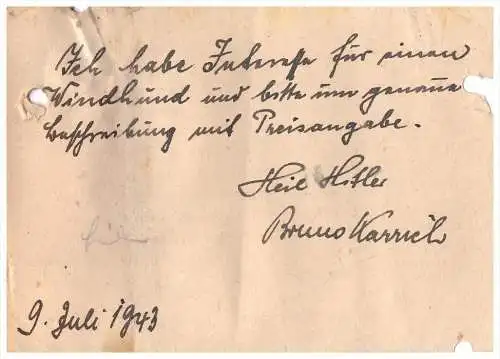 Ich habe Interesse für einen
Windhund und bitte um genaue
Beschreibung mit Preisangabe.
Heil Hitler
Bruno Karrich
9. Juli 1943